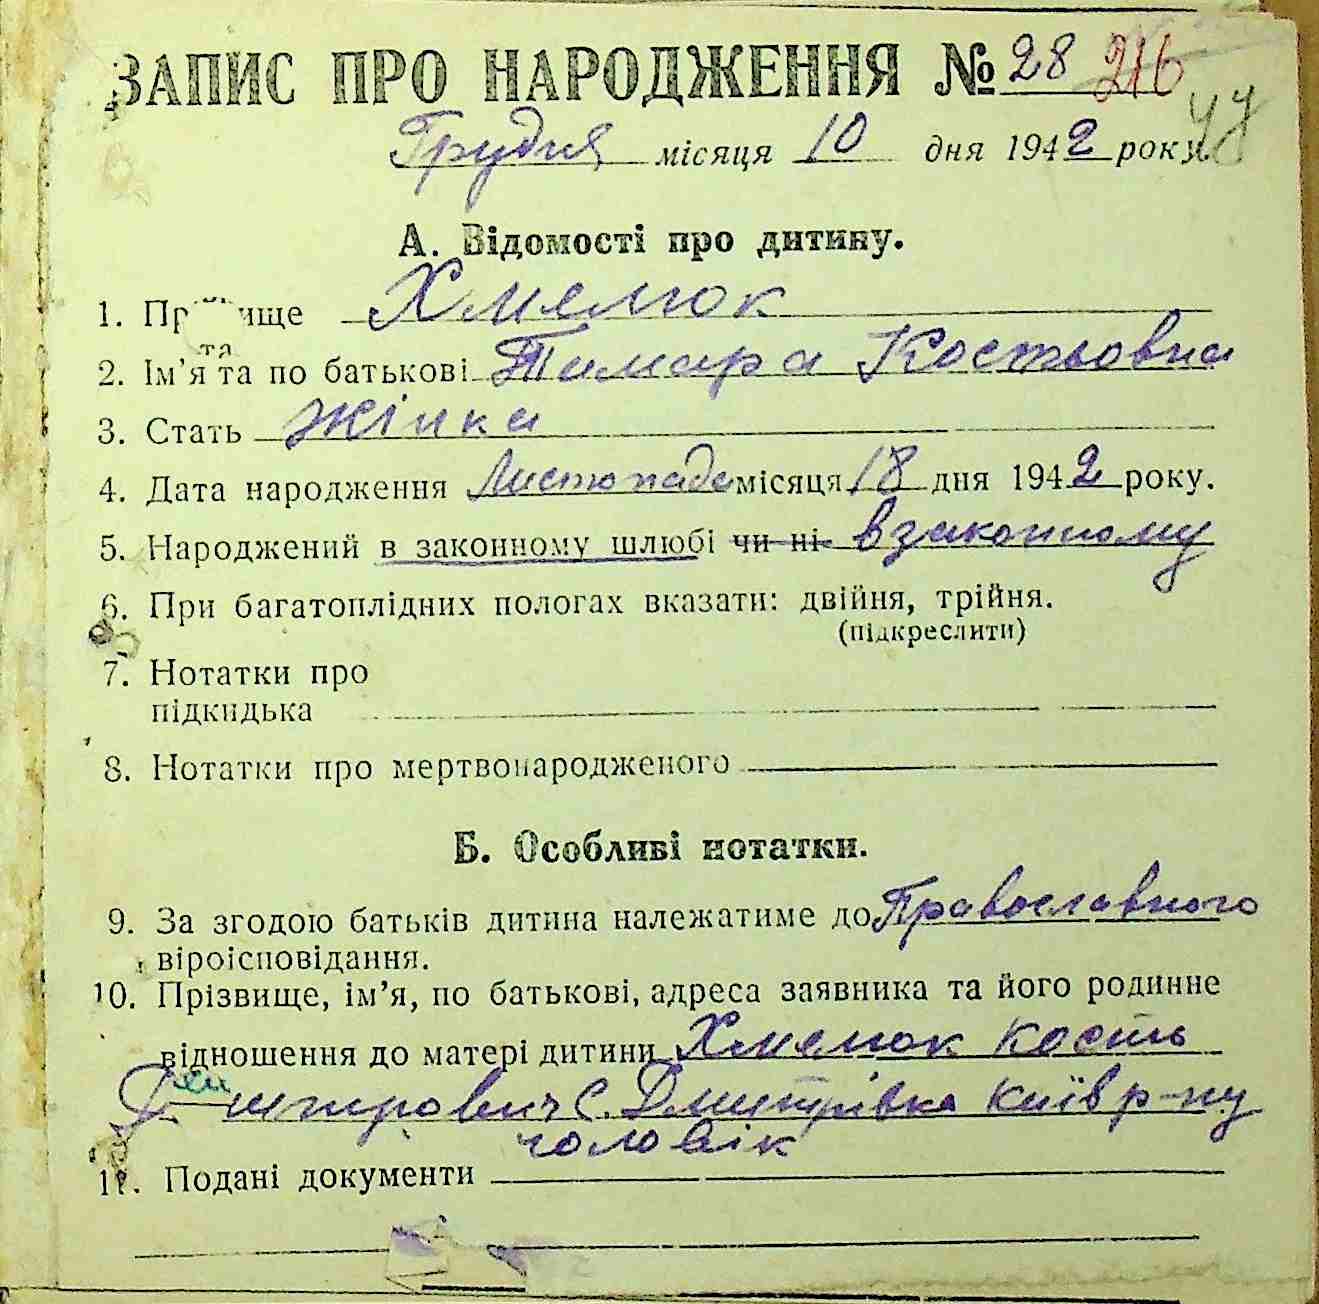 ЗАПИС ПРО НАРОДЖЕННЯ № 28 216
47
Грудня місяця 10 дня 1942 року.
А. Відомості про дитину.
1. Прізвище Хмелюк
2. Ім'я та по батькові Тамара Костьовна
3. Стать Жінка
4. Дата народження Листопада місяця 18 дня 1942 року.
5. Народжений в законному шлюбі чи ні. в законному
6. При багатоплідних пологах вказати: двійня, трійня.
(підкреслити)
7. Нотатки про
підкидька
8. Нотатки про мертвонародженого
Б. Особливі нотатки.
9. За згодою батьків дитина належатиме до Православного
віроісповідання.
10. Прізвище, ім'я, по батькові, адреса заявника та його родинне
відношення до матері дитини Хмелюк Кость
Дмитрович С. Дмитрівка Київ р-ну
чоловік
11. Подані документи